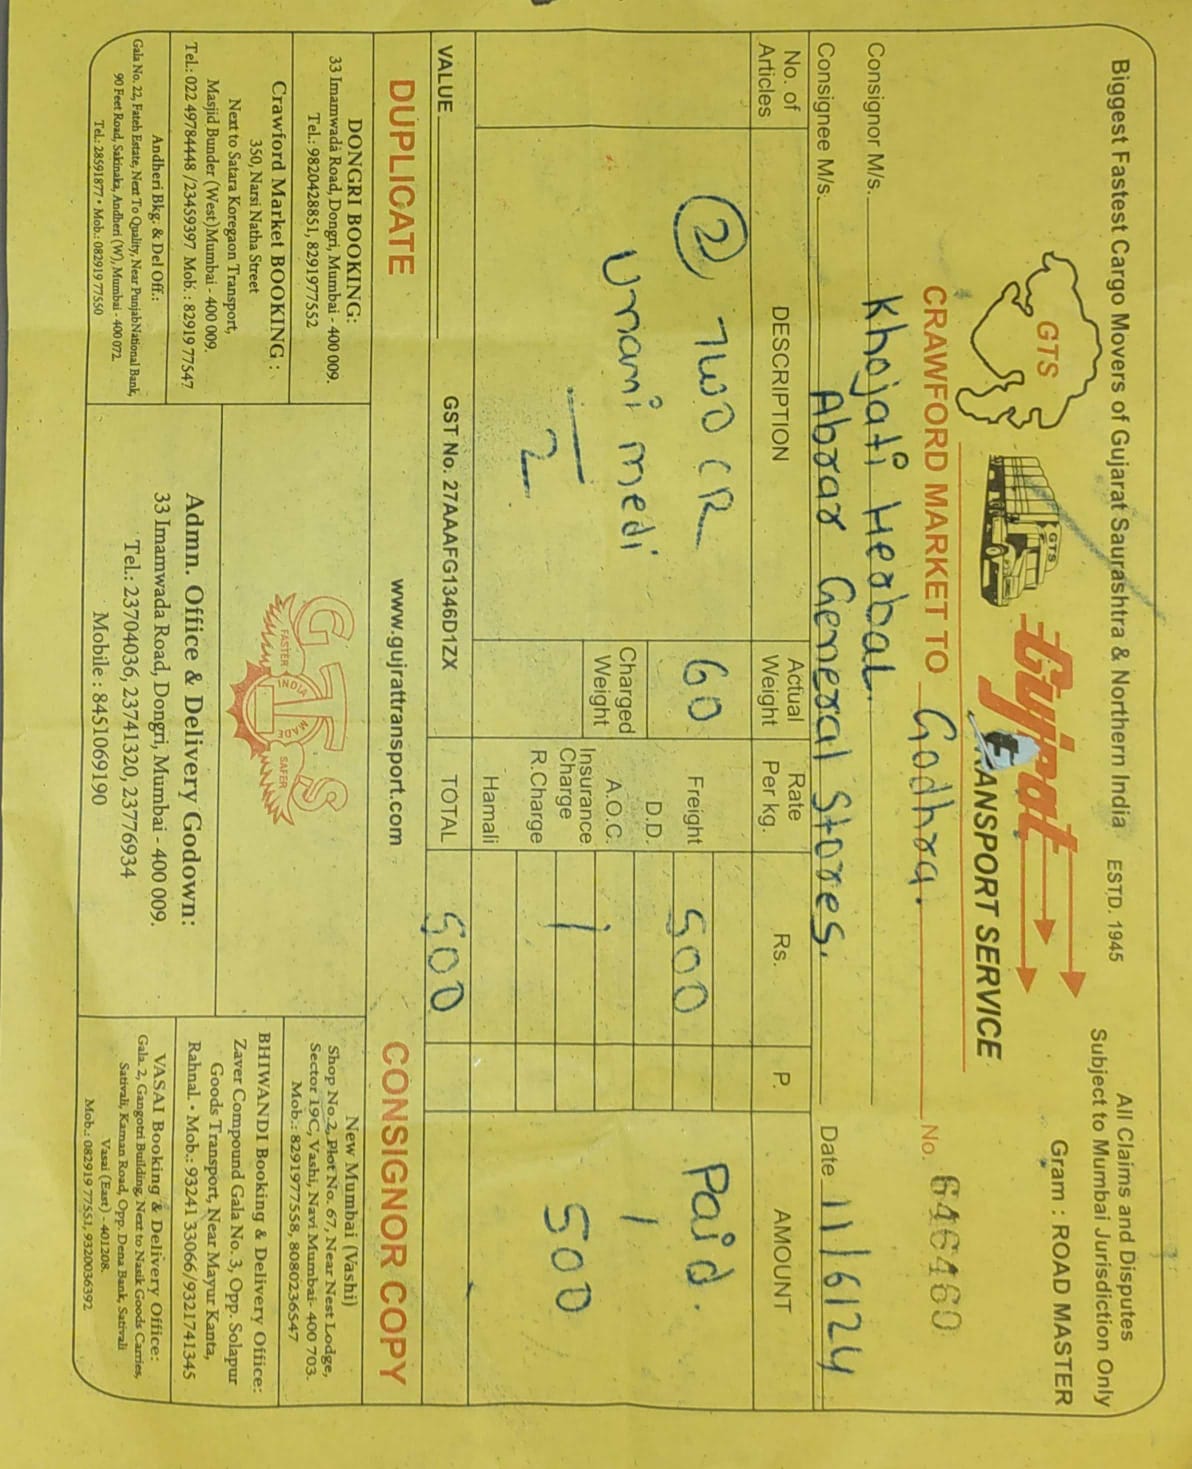 Biggest Fastest Cargo Movers of Gujarat Saurashtra & Northern India ESTD. 1945
All Claims and Disputes
Subject to Mumbai Jurisdiction Only
Gram : ROAD MASTER
GTS
GTS
Gujrat
TRANSPORT SERVICE
CRAWFORD MARKET TO Godhra.
No. 646460
Consignor M/s. Khojati Herbal.
Consignee M/s. Abrar General Stores. Date 11/6/24
No. of Articles DESCRIPTION Actual Weight Rate Per kg. Rs. P. AMOUNT
② TWO CR 60 Freight 500 Paid.
Unami medi
2
Charged Weight
D.D.
A.O.C.
Insurance Charge
R.Charge
Hamali
500
VALUE
GST No. 27AAAFG1346D1ZX
TOTAL 500
DUPLICATE www.gujrattransport.com CONSIGNOR COPY
DONGRI BOOKING:
33 Imamwada Road, Dongri, Mumbai - 400 009.
Tel.: 9820428851, 8291977552
Crawford Market BOOKING :
350, Narsi Natha Street
Next to Satara Koregaon Transport,
Masjid Bunder (West)Mumbai - 400 009.
Tel.: 022 49784448 /23459397 Mob. : 82919 77547
Andheri Bkg: & Del Off.:
Gala No. 22, Fateh Estate, Next To Quality, Near PunjabNational Bank,
90 Feet Road, Sakinaka, Andheri (W), Mumbai - 400 072.
Tel.: 28591877 • Mob.: 082919 77550
GTS
FASTER
INDIA
MAGE
SAFER
Admn. Office & Delivery Godown:
33 Imamwada Road, Dongri, Mumbai - 400 009.
Tel.: 23704036, 23741320, 23776934
Mobile : 8451069190
New Mumbai (Vashi)
Shop No.2, Plot No. 67, Near Nest Lodge,
Sector 19C, Vashi, Navi Mumbai- 400 703.
Mob.: 8291977558, 8080236547
BHIWANDI Booking & Delivery Office:
Zaver Compound Gala No. 3, Opp. Solapur
Goods Transport, Near Mayur Kanta,
Rahnal. • Mob.: 93241 33066/9321741345
VASAI Booking & Delivery Office:
Gala. 2, Gangotri Building, Next to Nasik Goods Carries,
Sativali, Kaman Road, Opp. Dena Bank, Sativali
Vasai (East) - 401208.
Mob.: 082919 77551, 9320036392